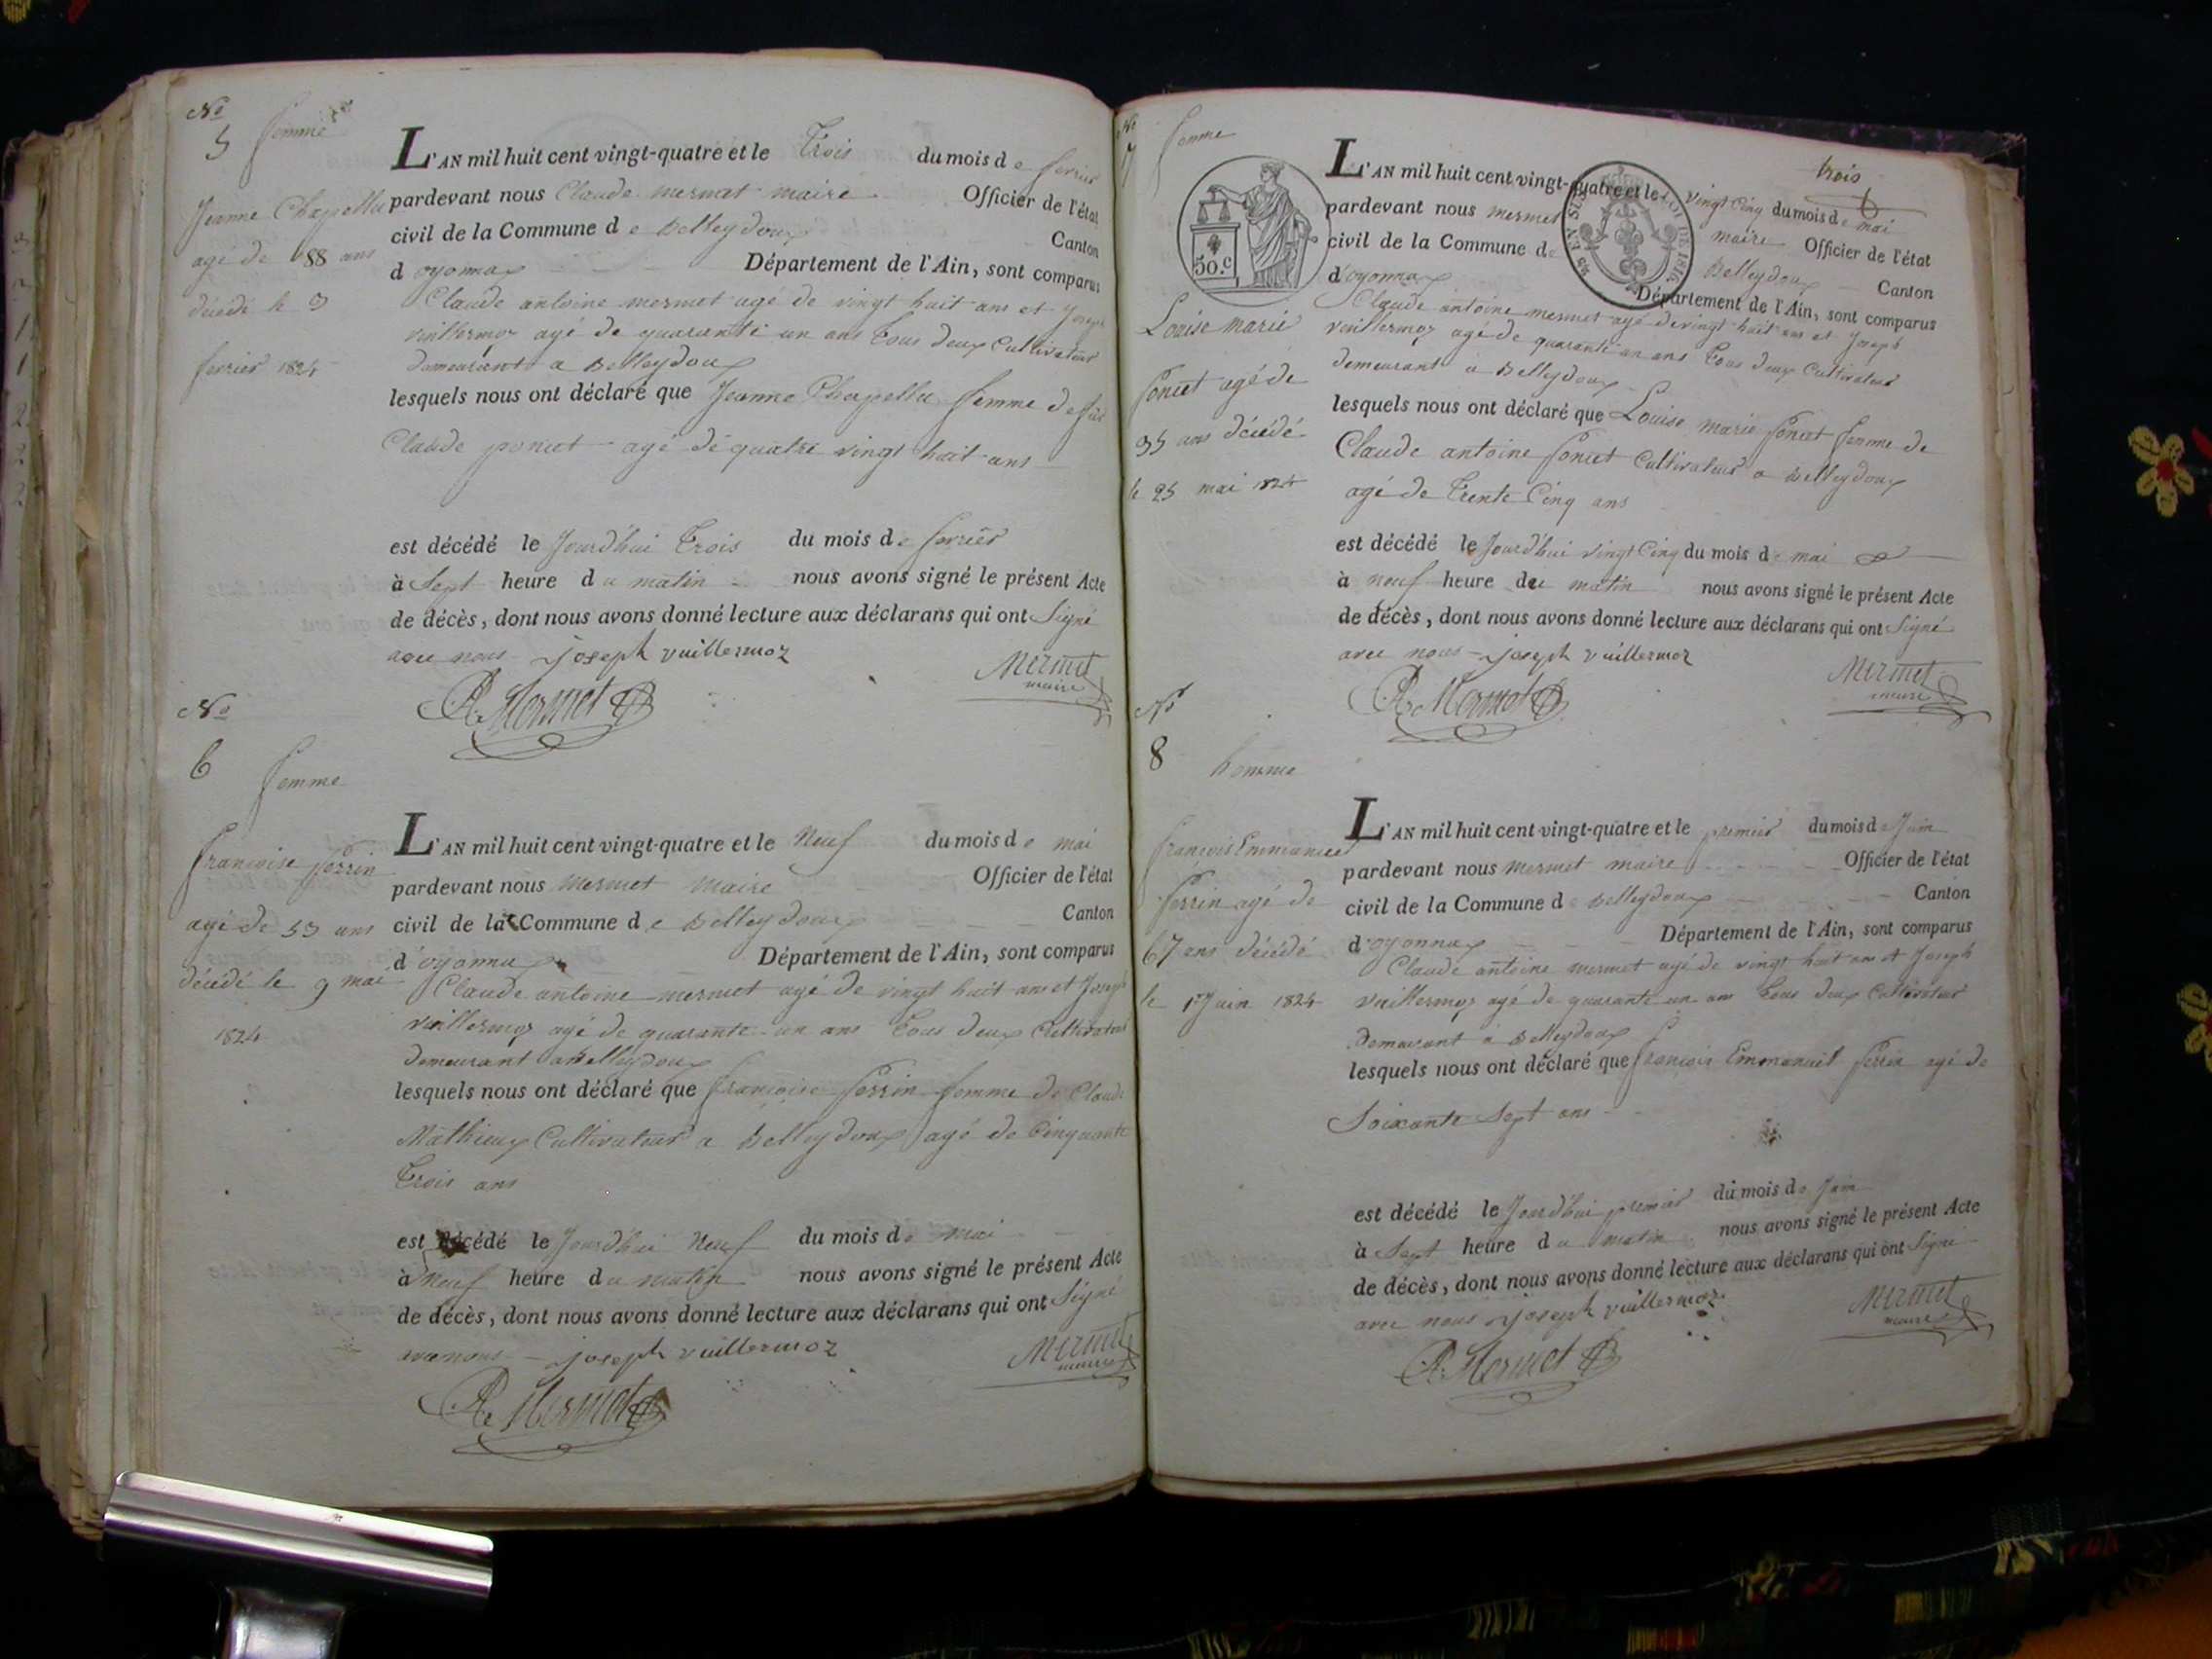 No
5 femme
Jeanne Chapellu
agé de 88 ans
décédé le 3
fevrier 1824
L'AN mil huit cent vingt-quatre et le Trois du mois de fevrier
pardevant nous Claude mermet maire Officier de l'état
civil de la Commune de Belleydoux Canton
d oyonnax Département de l'Ain, sont comparus
Claude antoine mermet agé de vingt huit ans et Joseph
vuillermoz agé de quarante un ans Tous deux Cultivateur
demeurant a Belleydoux
lesquels nous ont déclaré que Jeanne Chapellu femme de feu
Claude poncet agé de quatre vingt huit ans
est décédé le Jourd'hui Trois du mois de fevrier
à Sept heure du matin nous avons signé le présent Acte
de décès, dont nous avons donné lecture aux déclarans qui ont Signé
avec nous joseph vuillermoz Mermet
maire
Mermet
No
6 femme
francoise perrin
agé de 53 ans
décédé le 9 mai
1824
L'AN mil huit cent vingt-quatre et le Neuf du mois de mai
pardevant nous mermet maire Officier de l'état
civil de la Commune de Belleydoux Canton
d'oyonnax Département de l'Ain, sont comparus
Claude antoine mermet agé de vingt huit ans et Joseph
vuillermoz agé de quarante un ans Tous deux Cultivateur
demeurant a Belleydoux
lesquels nous ont déclaré que francoise perrin femme de Claude
Mathieux Cultivateur a Belleydoux agé de Cinquante
Trois ans
est décédé le Jourd'hui Neuf du mois de mai
à Neuf heure du matin nous avons signé le présent Acte
de décès, dont nous avons donné lecture aux déclarans qui ont Signé
avec nous joseph vuillermoz Mermet
maire
Mermet
No
7 femme
50.c
Louise marie
poncet agé de
35 ans décédé
le 25 mai 1824
trois
L'AN mil huit cent vingt-quatre et le vingt Cinq du mois de mai
pardevant nous mermet maire Officier de l'état
civil de la Commune de Belleydoux Canton
d'oyonnax Département de l'Ain, sont comparus
EN SUS LOI DE 1816
Claude antoine mermet agé de vingt huit ans et Joseph
vuillermoz agé de quarante un ans Tous deux Cultivateur
demeurant a Belleydoux
lesquels nous ont déclaré que Louise marie poncet femme de
Claude antoine poncet Cultivateur a Belleydoux
agé de Trente Cinq ans
est décédé le Jourd'hui vingt Cinq du mois de mai
à neuf heure du matin nous avons signé le présent Acte
de décès, dont nous avons donné lecture aux déclarans qui ont Signé
avec nous joseph vuillermoz Mermet
maire
Mermet
No
8 homme
francois Emmanuel
perrin agé de
67 ans décédé
le 1er Juin 1824
L'AN mil huit cent vingt-quatre et le premier du mois de Juin
pardevant nous mermet maire Officier de l'état
civil de la Commune de Belleydoux Canton
d'oyonnax Département de l'Ain, sont comparus
Claude antoine mermet agé de vingt huit ans et Joseph
vuillermoz agé de quarante un ans Tous deux Cultivateur
demeurant a Belleydoux
lesquels nous ont déclaré que francois Emmanuel perrin agé de
Soixante Sept ans
est décédé le Jourd'hui premier du mois de Juin
à Sept heure du matin nous avons signé le présent Acte
de décès, dont nous avons donné lecture aux déclarans qui ont Signé
avec nous joseph vuillermoz Mermet
maire
Mermet